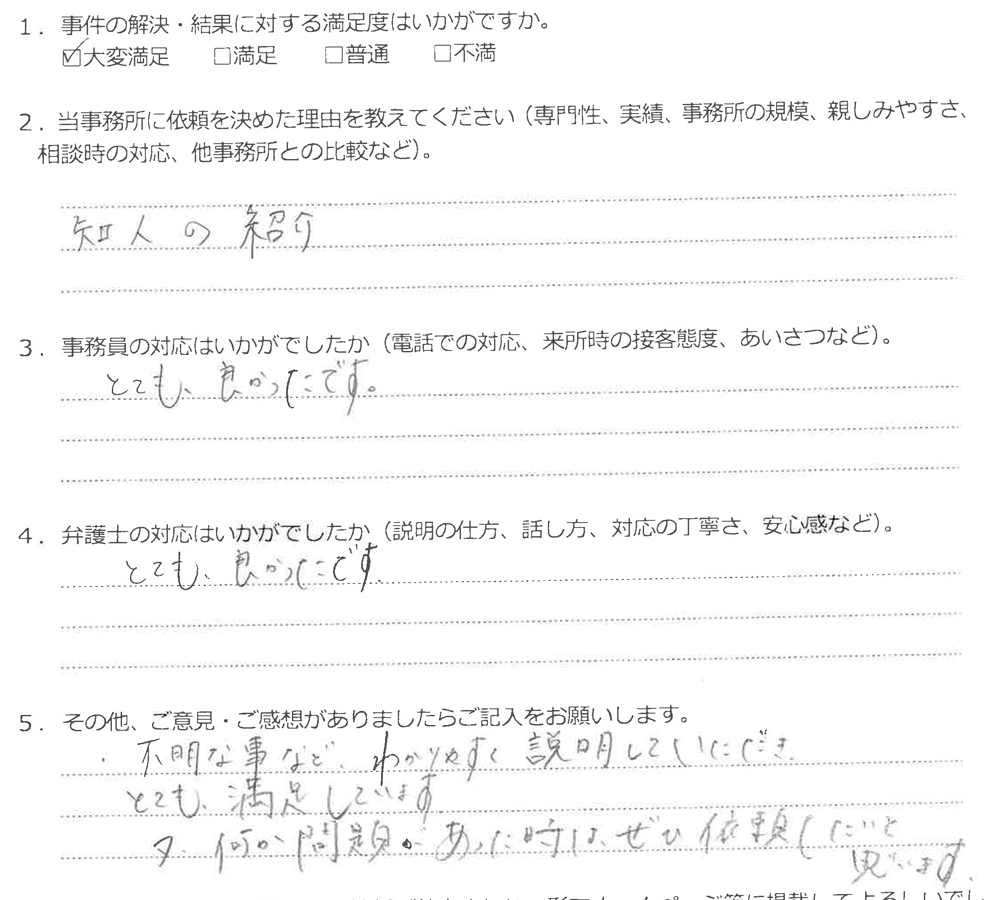 1．事件の解決・結果に対する満足度はいかがですか。
☑大変満足　□満足　□普通　□不満
2．当事務所に依頼を決めた理由を教えてください（専門性、実績、事務所の規模、親しみやすさ、
相談時の対応、他事務所との比較など）。
知人の紹介
3．事務員の対応はいかがでしたか（電話での対応、来所時の接客態度、あいさつなど）。
とても、良かったです。
4．弁護士の対応はいかがでしたか（説明の仕方、話し方、対応の丁寧さ、安心感など）。
とても、良かったです.
5．その他、ご意見・ご感想がありましたらご記入をお願いします。
・不明な事など、わかりやすく説明していただき.
とても、満足しています
又、何か問題があった時は、ぜひ依頼したいと
思います.
ページ等に掲載してよろしいでし